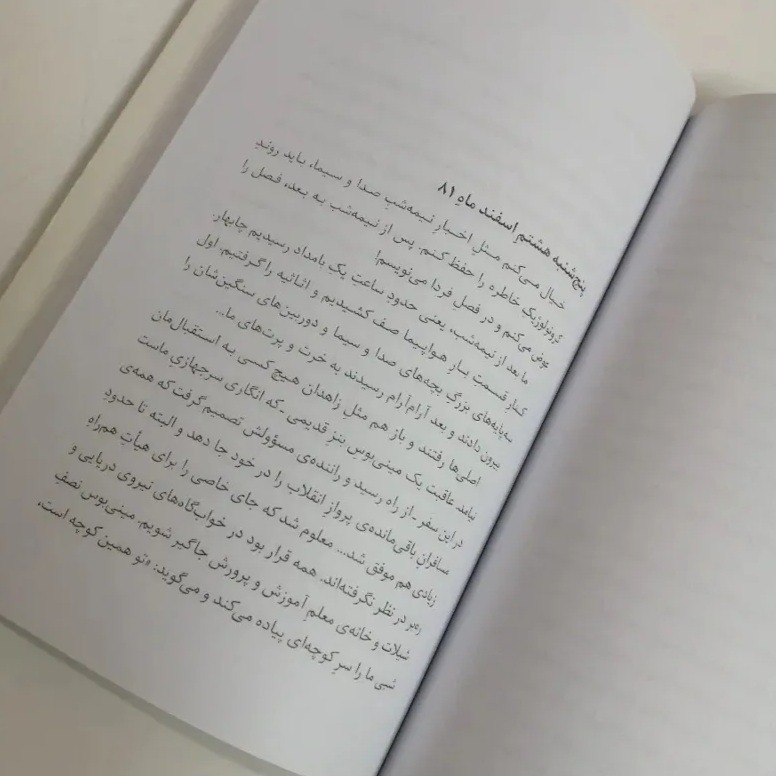 پنج‌شنبه هشتمِ اسفند ماهِ ۸۱
خیال می‌کنم مثلِ اخبارِ نیمه‌شبِ صدا و سیما، باید روندِ
کرونولوژیکِ خاطره را حفظ کنم. پس از نیمه‌شب به بعد، فصل را
عوض می‌کنم و در فصلِ فردا می‌نویسم!
ما بعد از نیمه‌شب، یعنی حدودِ ساعتِ یکِ بامداد رسیدیم چابهار.
کنارِ قسمت بارِ هواپیما صف کشیدیم و اثاثیه را گرفتیم. اول
سه‌پایه‌های بزرگِ بچه‌های صدا و سیما و دوربین‌های سنگین‌شان را
بیرون دادند و بعد آرام‌آرام رسیدند به خرت و پرت‌های ما...
اصلی‌ها رفتند و باز هم مثل زاهدان هیچ کسی به استقبال‌مان
نیامد. عاقبت یک مینی‌بوسِ بنزِ قدیمی -که انگاری سرجهازیِ ماست
در این سفر- از راه رسید و راننده‌ی مسؤولش تصمیم گرفت که همه‌ی
مسافرانِ باقی‌مانده‌ی پروازِ انقلاب را در خود جا دهد و البته تا حدودِ
زیادی هم موفق شد... معلوم شد که جای خاصی را برای هیأتِ هم‌راهِ
رهبر در نظر نگرفته‌اند. همه قرار بود در خواب‌گاه‌های نیروی دریایی و
شیلات و خانه‌ی معلمِ آموزش و پرورش جاگیر شویم. مینی‌بوس نصفِ
شبی ما را سرِ کوچه‌ای پیاده می‌کند و می‌گوید: «تو همین کوچه است.